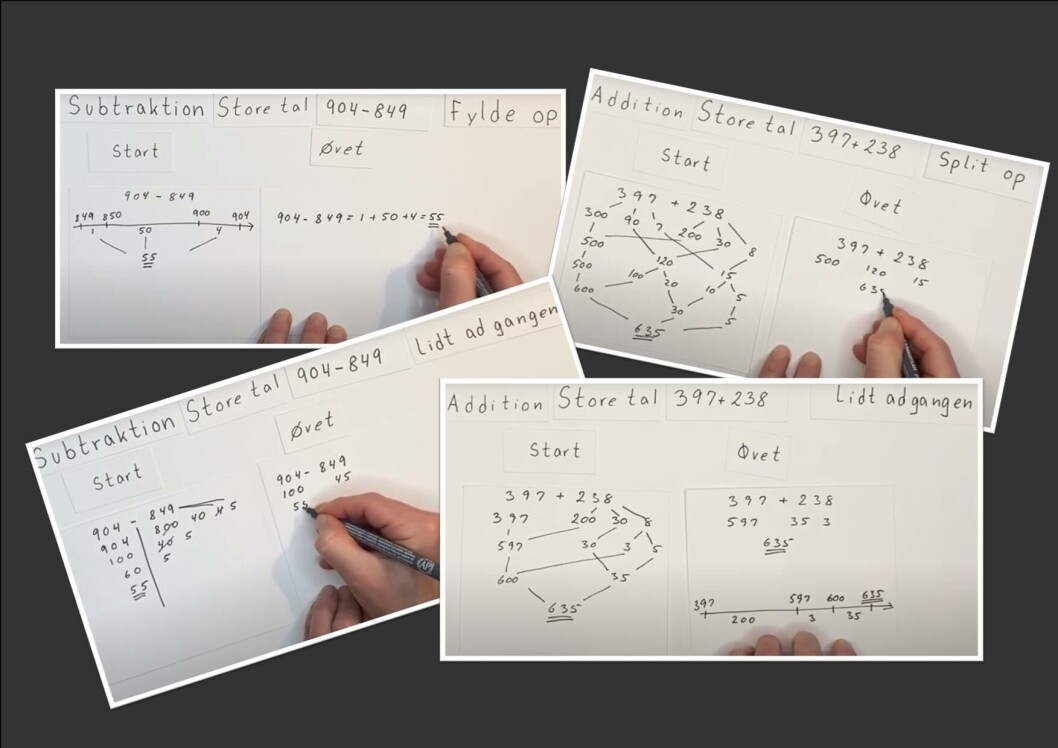 Subtraktion Store tal 904-849 Fylde op
Start Øvet
904 - 849
849 850 900 904
1 50 4
55
904 - 849 = 1 + 50 + 4 = 55
Addition Store tal 397+238 Split op
Start Øvet
397 + 238
300 90 7 200 30 8
500 120 15
500 100 20 10 5
600 30 5
635
397 + 238
500 120 15
635
Subtraktion Store tal 904-849 Lidt ad gangen
Start Øvet
904 - 849
904 800 40 4 5
100 40 5
60 5
55
904 - 849
100 45
55
AP
Addition Store tal 397+238 Lidt ad gangen
Start Øvet
397 + 238
397 200 30 8
597 30 3 5
600 35
635
397 + 238
597 35 3
635
397 597 600 635
200 3 35